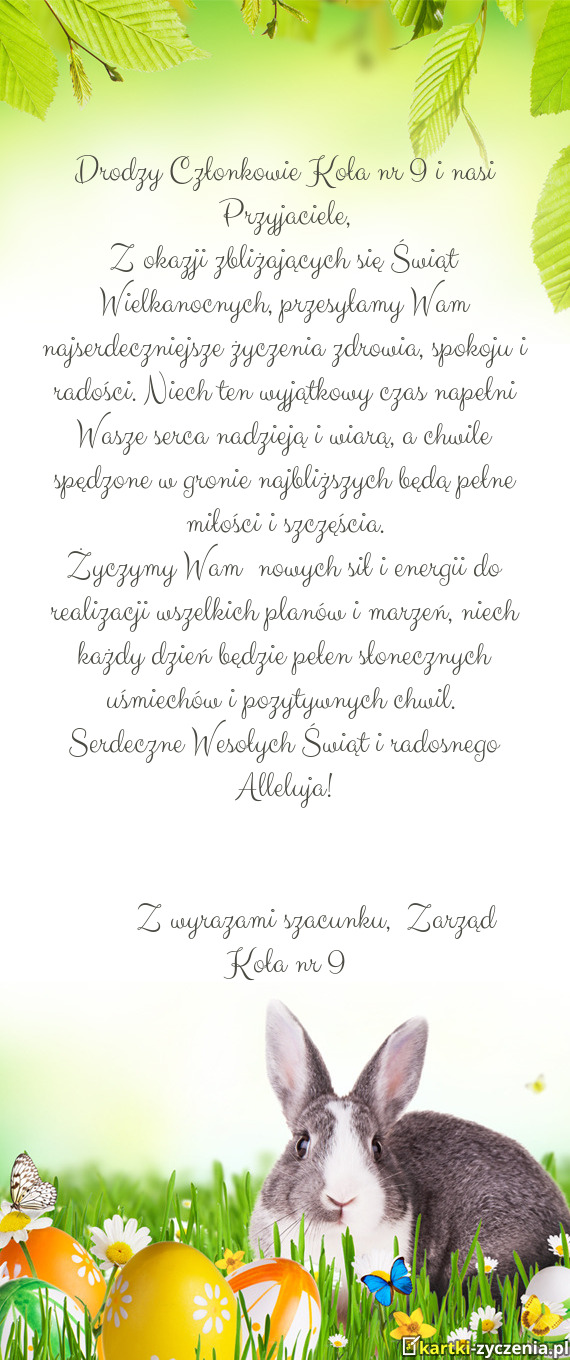 Drodzy Członkowie Koła nr 9 i nasi
Przyjaciele,
Z okazji zbliżających się Świąt
Wielkanocnych, przesyłamy Wam
najserdeczniejsze życzenia zdrowia, spokoju i
radości. Niech ten wyjątkowy czas napełni
Wasze serca nadzieją i wiarą, a chwile
spędzone w gronie najbliższych będą pełne
miłości i szczęścia.
Życzymy Wam nowych sił i energii do
realizacji wszelkich planów i marzeń, niech
każdy dzień będzie pełen słonecznych
uśmiechów i pozytywnych chwil.
Serdeczne Wesołych Świąt i radosnego
Alleluja!
Z wyrazami szacunku, Zarząd
Koła nr 9
kartki-zyczenia.pl